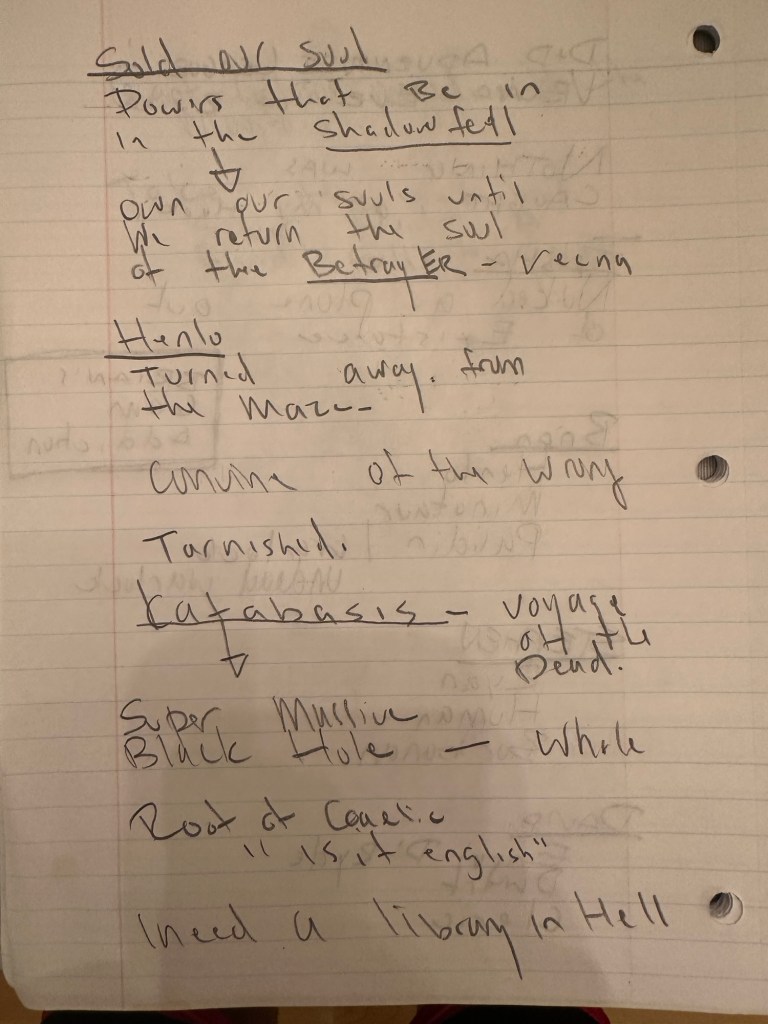 Sold our soul
Powers that Be in
in the Shadowfell
own our souls until
We return the soul
of the BetrayER - Vecna
Henlo
Turned away. from
the maze--
of the wrong
Tarnished.
Katabasis - voyage
off the
Dead.
Super Massive
Black Hole — Whole
Root of
"is it english"
I need a library in Hell